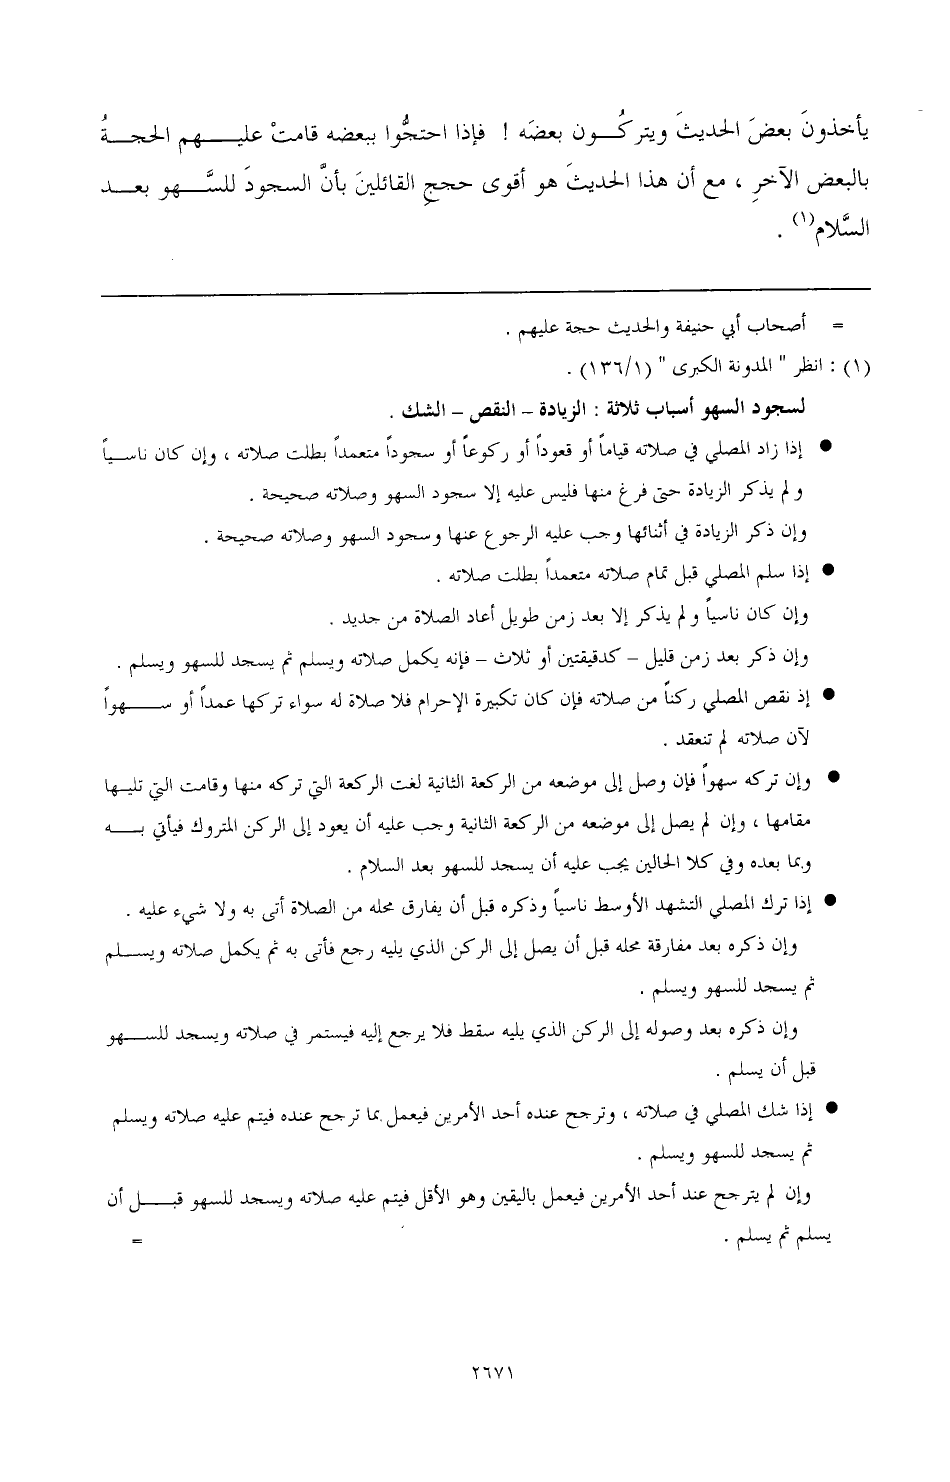 يأخذونَ بعضَ الحديثَ ويتركُون بعضَه ! فإذا احتجُّوا ببعضه قامتْ عليهم الحجةُ
بالبعض الآخرِ ، مع أن هذا الحديثَ هو أقوى حججِ القائلينَ بأنَّ السجودَ للسَّهو بعد
السَّلام(١) .
= أصحاب أبي حنيفة والحديث حجة عليهم .
(١) : انظر " المدونة الكبرى " (١٣٦/١) .
لسجود السهو أسباب ثلاثة : الزيادة – النقص – الشك .
● إذا زاد المصلي في صلاته قياماً أو قعوداً أو ركوعاً أو سجوداً متعمداً بطلت صلاته ، وإن كان ناسياً
ولم يذكر الزيادة حتى فرغ منها فليس عليه إلا سجود السهو وصلاته صحيحة .
وإن ذكر الزيادة في أثنائها وجب عليه الرجوع عنها وسجود السهو وصلاته صحيحة .
● إذا سلم المصلي قبل تمام صلاته متعمداً بطلت صلاته .
وإن كان ناسياً ولم يذكر إلا بعد زمن طويل أعاد الصلاة من جديد .
وإن ذكر بعد زمن قليل – كدقيقتين أو ثلاث – فإنه يكمل صلاته ويسلم ثم يسجد للسهو ويسلم .
● إذ نقص المصلي ركناً من صلاته فإن كان تكبيرة الإحرام فلا صلاة له سواء تركها عمداً أو سهواً
لآن صلاته لم تنعقد .
● وإن تركه سهواً فإن وصل إلى موضعه من الركعة الثانية لغت الركعة التي تركه منها وقامت التي تليها
مقامها ، وإن لم يصل إلى موضعه من الركعة الثانية وجب عليه أن يعود إلى الركن المتروك فيأتي به
وبما بعده وفي كلا الحالين يجب عليه أن يسجد للسهو بعد السلام .
● إذا ترك المصلي التشهد الأوسط ناسياً وذكره قبل أن يفارق محله من الصلاة أتى به ولا شيء عليه .
وإن ذكره بعد مفارقة محله قبل أن يصل إلى الركن الذي يليه رجع فأتى به ثم يكمل صلاته ويسلم
ثم يسجد للسهو ويسلم .
وإن ذكره بعد وصوله إلى الركن الذي يليه سقط فلا يرجع إليه فيستمر في صلاته ويسجد للسهو
قبل أن يسلم .
● إذا شك المصلي في صلاته ، وترجح عنده أحد الأمرين فيعمل بما ترجح عنده فيتم عليه صلاته ويسلم
ثم يسجد للسهو ويسلم .
وإن لم يترجح عند أحد الأمرين فيعمل باليقين وهو الأقل فيتم عليه صلاته ويسجد للسهو قبل أن
يسلم ثم يسلم . =
٢٦٧١